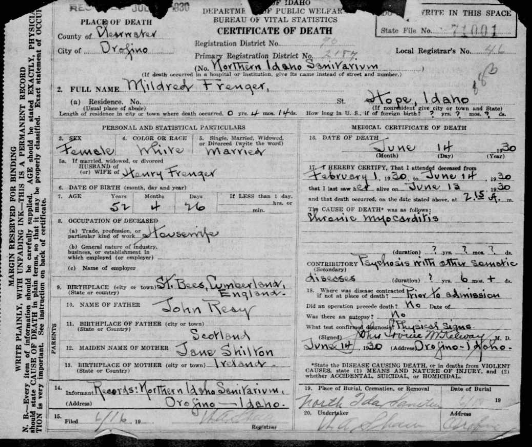 OF IDAHO
DEPARTMENT OF PUBLIC WELFARE
BUREAU OF VITAL STATISTICS
CERTIFICATE OF DEATH
WRITE IN THIS SPACE
State File No. 71001
PLACE OF DEATH
County of Clearwater
City of Orofino
Registration District No.
Primary Registration District No.
Local Registrar's No.
(No. Northern Idaho Sanitarium
(If death occurred in a hospital or institution, give its name instead of street and number.)
2. FULL NAME Mildred Frenger,
(a) Residence. No. St. Hope, Idaho
(Usual place of abode) (If nonresident give city or town and State)
Length of residence in city or town where death occurred. 0 yrs. 4 mos. 14 ds. How long in U. S., if of foreign birth? ? yrs. ? mos. ? ds.
PERSONAL AND STATISTICAL PARTICULARS
3. SEX Female
4. COLOR OR RACE White
5. Single, Married, Widowed, or Divorced (write the word) Married
5a. If married, widowed, or divorced
HUSBAND of
(or) WIFE of Henry Frenger
6. DATE OF BIRTH (month, day and year)
7. AGE Years 52 Months 4 Days 26 If LESS than 1 day, hrs. or min.
8. OCCUPATION OF DECEASED
(a) Trade, profession, or particular kind of work Housewife
(b) General nature of industry, business, or establishment in which employed (or employer)
(c) Name of employer
9. BIRTHPLACE (city or town) St. Bees, Cumberland,
(State or country) England.
PARENTS
10. NAME OF FATHER John Reay
11. BIRTHPLACE OF FATHER (city or town)
(State or Country) Scotland
12. MAIDEN NAME OF MOTHER Jane Shilton
13. BIRTHPLACE OF MOTHER (city or town)
(State or Country) Ireland
14. Informant Records: Northern Idaho Sanitarium,
(Address) Orofino - Idaho.
15. Filed 6/16, 19
Registrar
MEDICAL CERTIFICATE OF DEATH
16. DATE OF DEATH June 14 1930
(Month) (Day) (Year)
17. I HEREBY CERTIFY, That I attended deceased from
February 1, 1930 to June 14 1930
that I last saw her alive on June 13 1930
and that death occurred, on the date stated above, at 2:15 A. m.
The CAUSE OF DEATH was as follows:
Chronic myocarditis
(duration) ? yrs. ? mos. ? ds.
CONTRIBUTORY Psychosis with other somatic
(Secondary)
diseases (duration) ? yrs. 6 mos. + ds.
18. Where was disease contracted
if not at place of death? Prior to admission
Did an operation precede death? No Date of
Was there an autopsy? No
What test confirmed diagnosis? Physical Signs.
(Signed) M. D.
June 14, 1930 (Address) Orofino - Idaho.
*State the DISEASE CAUSING DEATH, or in deaths from VIOLENT CAUSES, state (1) MEANS AND NATURE OF INJURY, and (2) whether ACCIDENTAL, SUICIDAL, or HOMICIDAL.
19. Place of Burial, Cremation, or Removal Date of Burial
19
20. Undertaker (Address)
MARGIN RESERVED FOR BINDING
WRITE PLAINLY, WITH UNFADING INK—THIS IS A PERMANENT RECORD